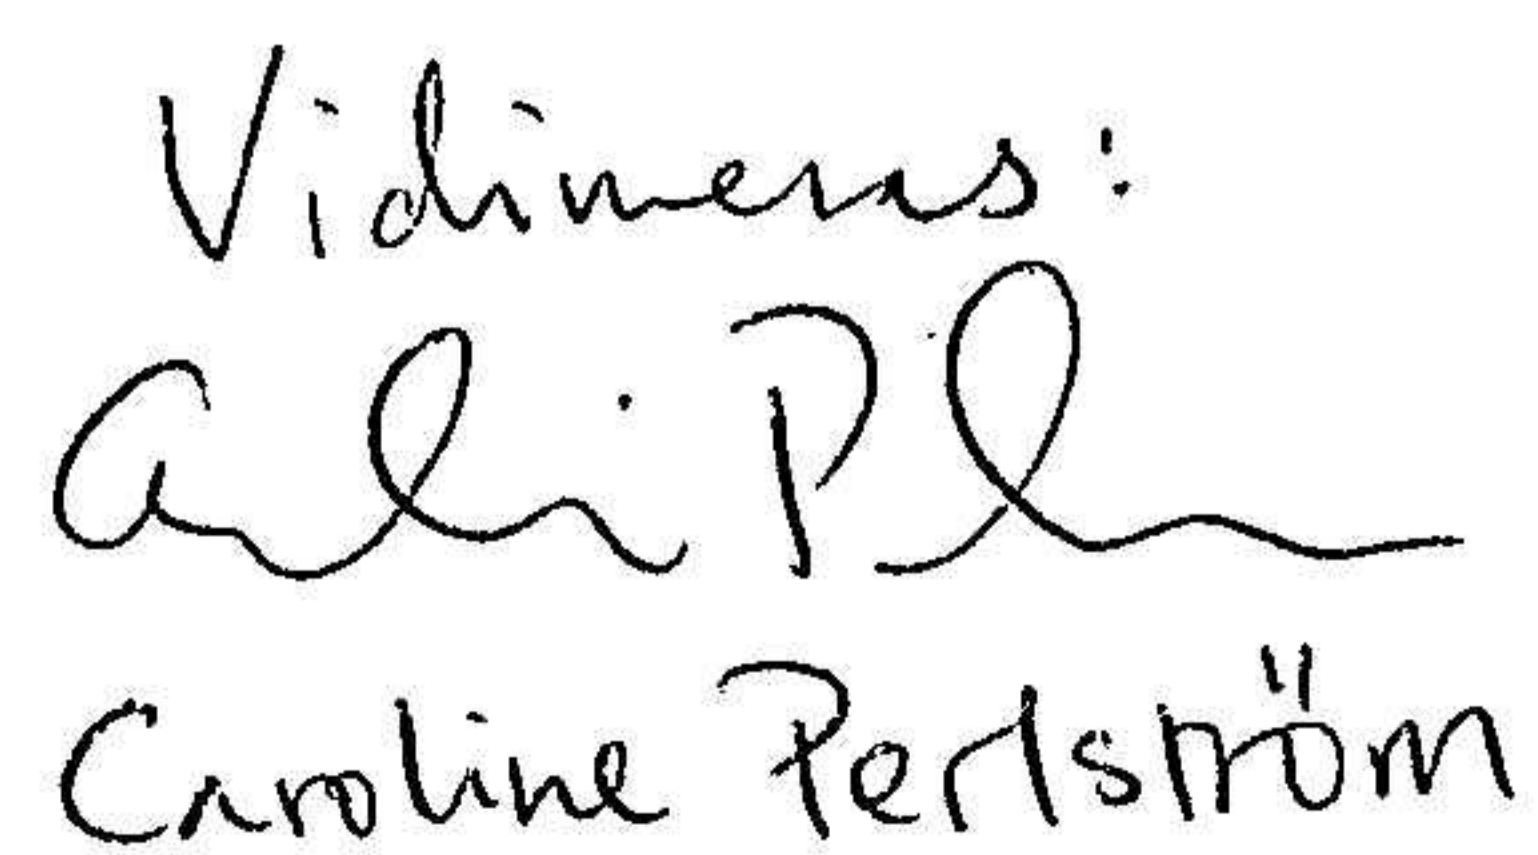 Vidimeras:
Caroline Perlström